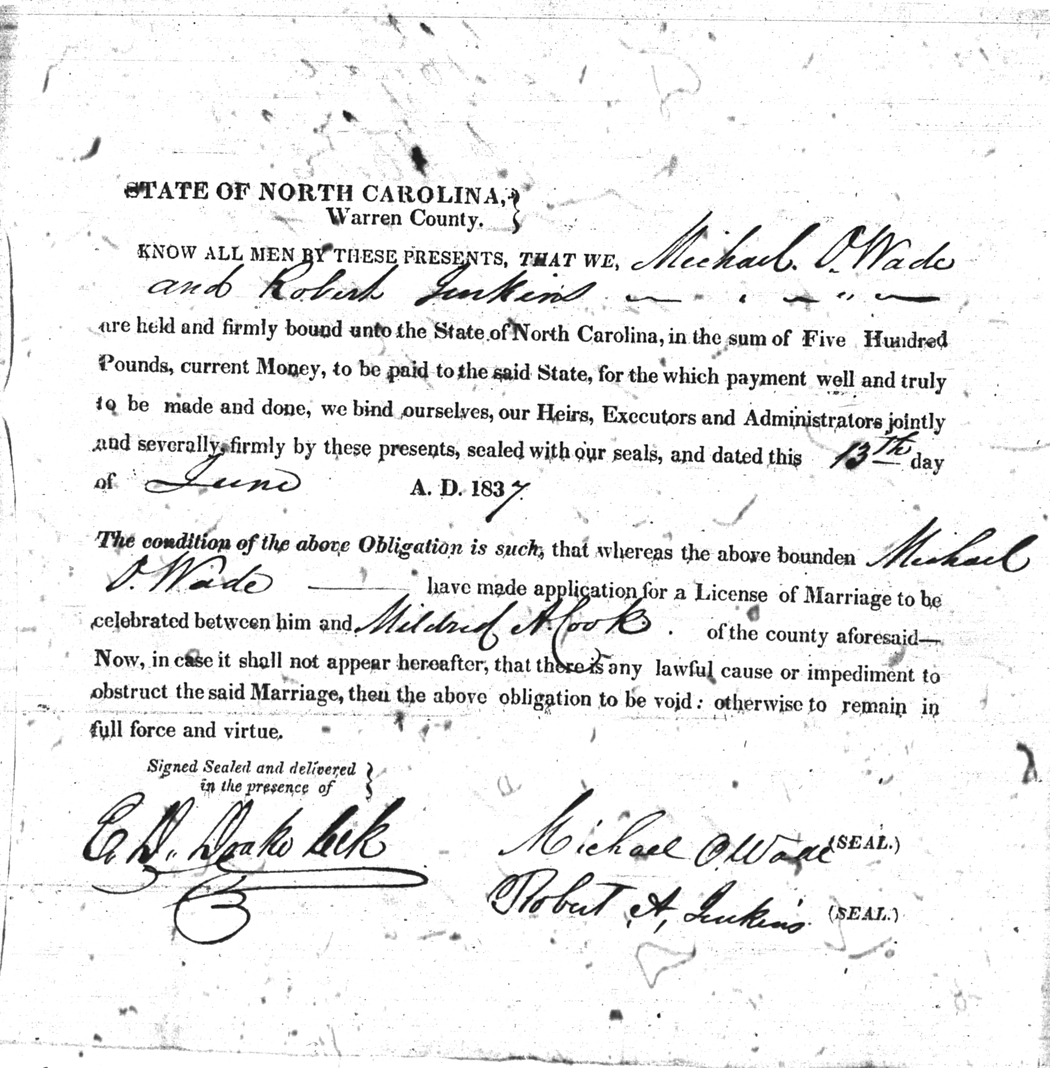 STATE OF NORTH CAROLINA,
Warren County.
KNOW ALL MEN BY THESE PRESENTS, THAT WE, Michael. O. Wade
and Robert Jenkins
are held and firmly bound unto the State of North Carolina, in the sum of Five Hundred
Pounds, current Money, to be paid to the said State, for the which payment well and truly
to be made and done, we bind ourselves, our Heirs, Executors and Administrators jointly
and severally, firmly by these presents, sealed with our seals, and dated this 13th day
of June A. D. 1837.
The condition of the above Obligation is such, that whereas the above bounden Michael
O. Wade have made application for a License of Marriage to be
celebrated between him and Mildred A. Cook. of the county aforesaid—
Now, in case it shall not appear hereafter, that there is any lawful cause or impediment to
obstruct the said Marriage, then the above obligation to be void: otherwise to remain in
full force and virtue.
Signed Sealed and delivered
in the presence of
E. D. Drake Clk
Michael O Wade (SEAL.)
Robert A. Jenkins (SEAL.)